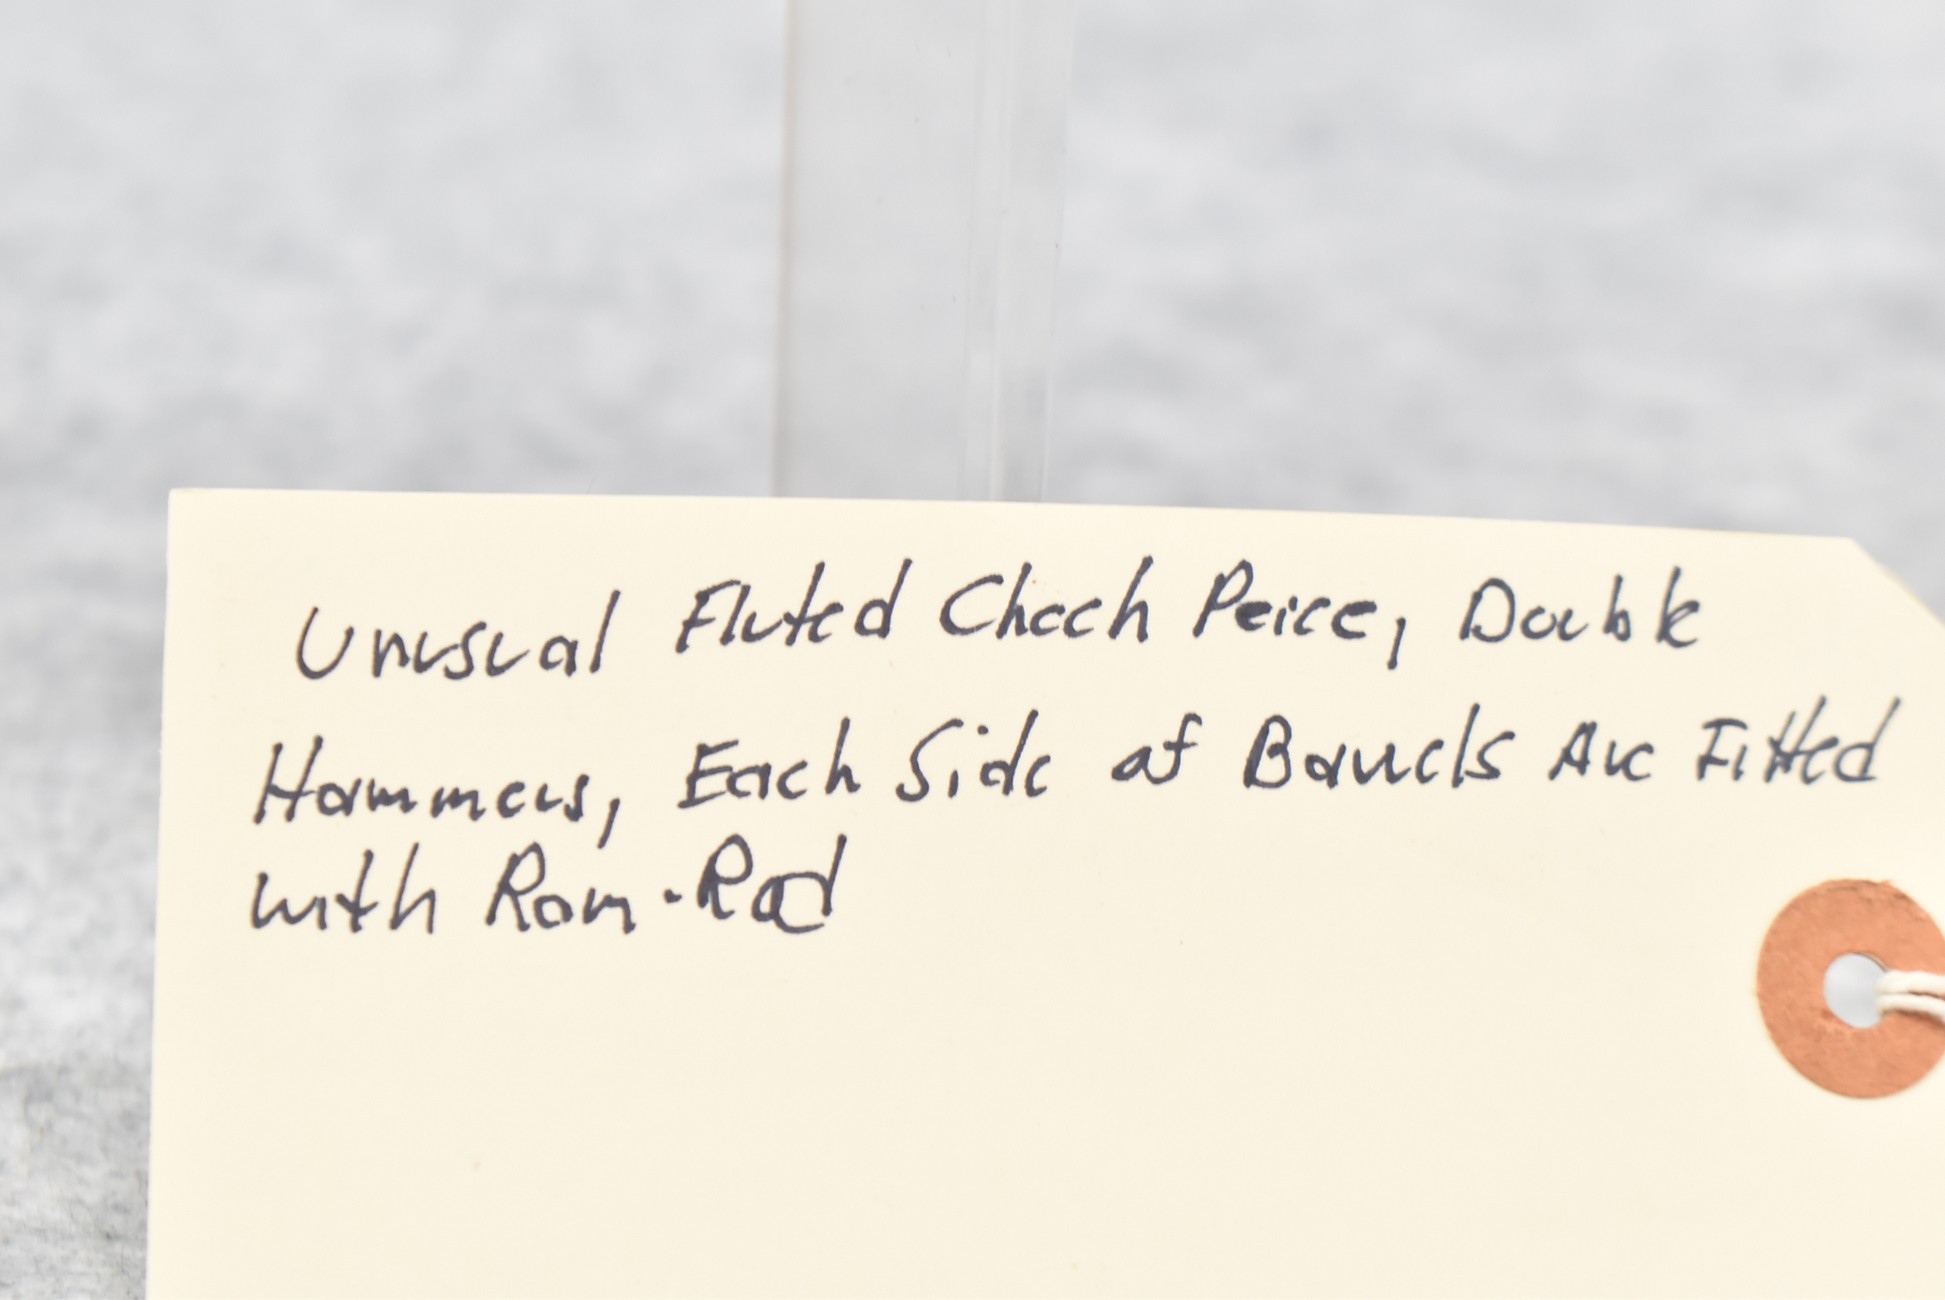 Unusual Fluted Cheek Peice, Double
Hammers, Each Side of Barrels Are Fitted
with Ram-Rod